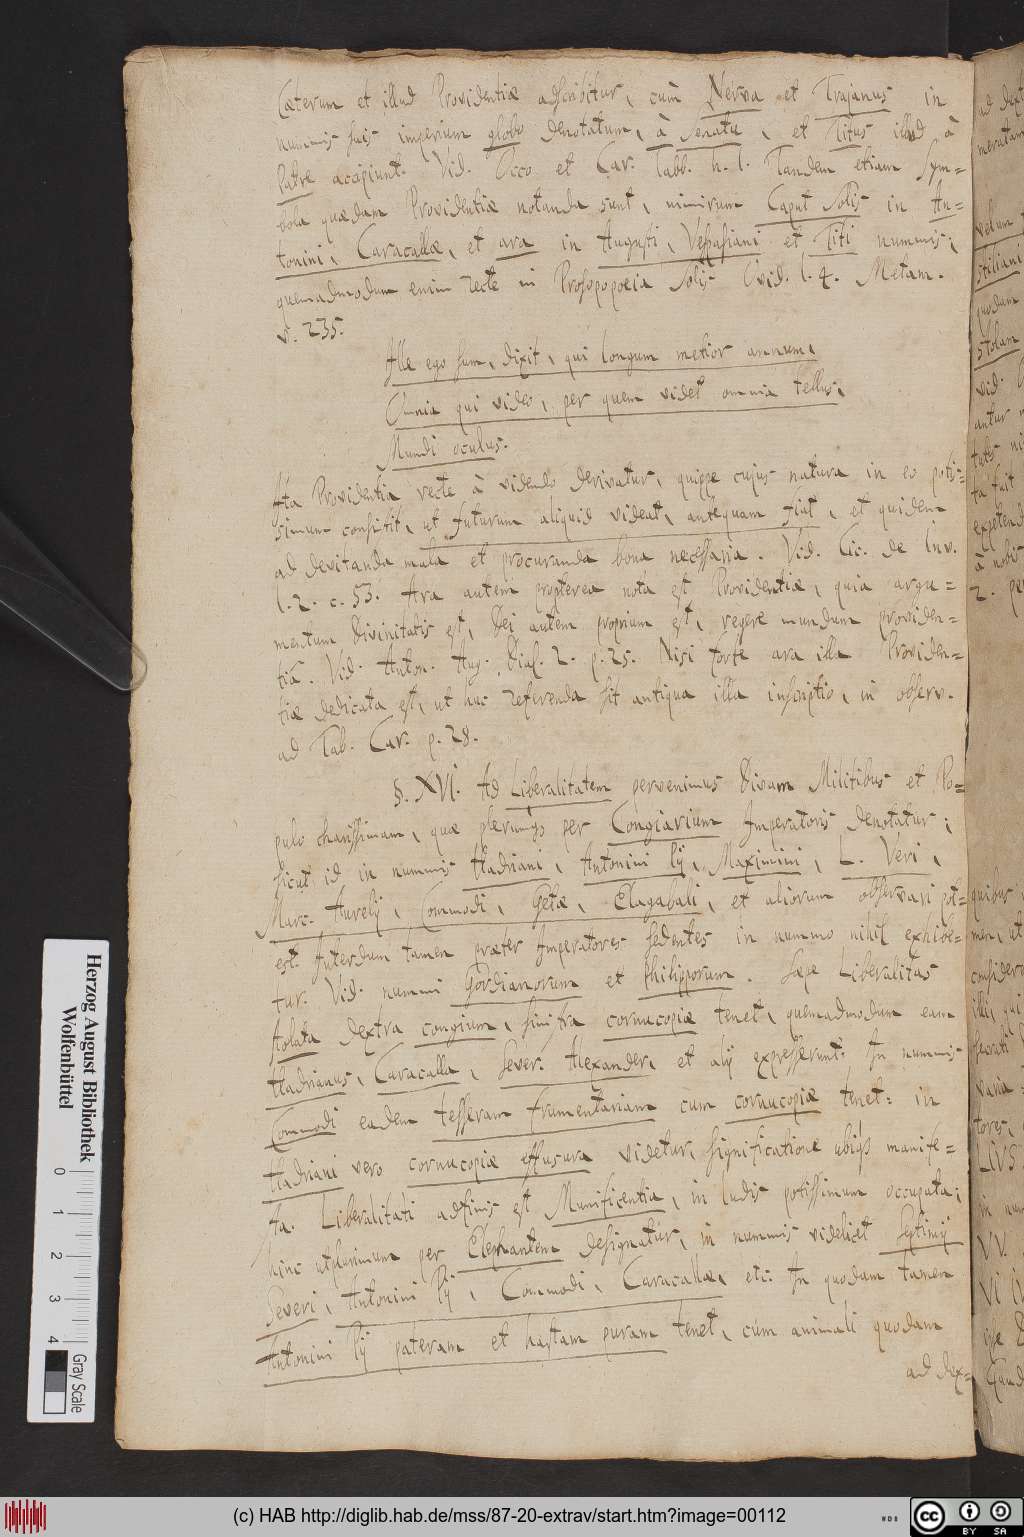 Cæterum et illud Providentiæ adscribitur, cùm Nerva et Trajanus in
nummis suis imperium globo denotatum, à Senatu, et Titus illud à
Patre accipiunt. Vid. Occo et Car. Tabb. h. l. Tandem etiam Sym=
bola quædam Providentiæ notanda sunt, nimirum Caput Solis in An=
tonini, Caracallæ, et ara in Augusti, Vespasiani et Titi nummis;
quemadmodum enim recte in Prosopopoeia Solis Ovid. l. 4. Metam.
v. 235.
Ille ego sum, dixit, qui longum metior annum,
Omnia qui video, per quem videt omnia tellus,
Mundi oculus.
Ita Providentia recte à videndo derivatur, quippe cujus natura in eo potis=
simum consistit, ut futurum aliquid videat, antequam fiat, et quidem
ad devitanda mala et procuranda bona necessaria. Vid. Cic. de Inv.
l. 2. c. 53. Ara autem propterea nota est Providentiæ, quia argu=
mentum Divinitatis est, Dei autem proprium est, regere mundum providen=
tiâ. Vid. Anton. Aug. Dial. 2. p. 25. Nisi forte ara illa Providen=
tiæ dedicata est, ut huc referenda sit antiqua illa inscriptio, in observ.
ad Tab. Car. p. 28.
§. XVI. Ad Liberalitatem pervenimus Divam Militibus et Po=
pulo charissimam, quæ plerumqs per Congiarium Imperatoris denotatur;
sicut id in nummis Hadriani, Antonini Pij, Maximini, L. Veri,
Marc. Aurelij, Commodi, Getæ, Elagabali, et aliorum observari pot=
est. Interdum tamen præter Imperatores sedentes in nummo nihil exhibe=
tur. Vid. nummi Gordianorum et Philipporum. Sæpe Liberalitas
stolata dextra congium, sinistra cornucopiæ tenet, quemadmodum eam
Hadrianus, Caracalla, Sever. Alexander, et alij expresserunt. In nummis
Commodi eadem tesseram frumentariam cum cornucopiæ tenet: in
Hadriani vero cornucopiæ effusura videtur, significatione ubiqs manife=
sta. Liberalitati adfinis est Munificentia, in ludis potissimum occupata;
hinc utplurimum per Elephantem designatur, in nummis videlicet Septimij
Severi, Antonini Pij, Commodi, Caracallæ, etc. In quodam tamen
Antonini Pij pateram et hastam puram tenet, cum animali quodam
ad dex=
Herzog August Bibliothek
Wolfenbüttel
0 1 2 3 4
Gray Scale
(c) HAB http://diglib.hab.de/mss/87-20-extrav/start.htm?image=00112
cc BY SA